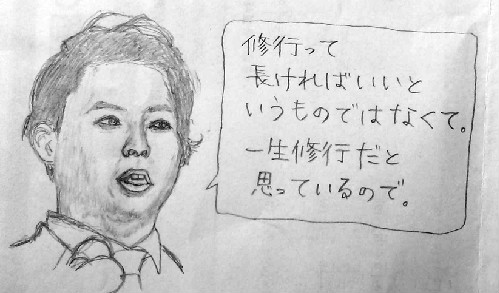 修行って
長ければいいと
いうものではなくて。
一生修行だと
思っているので。